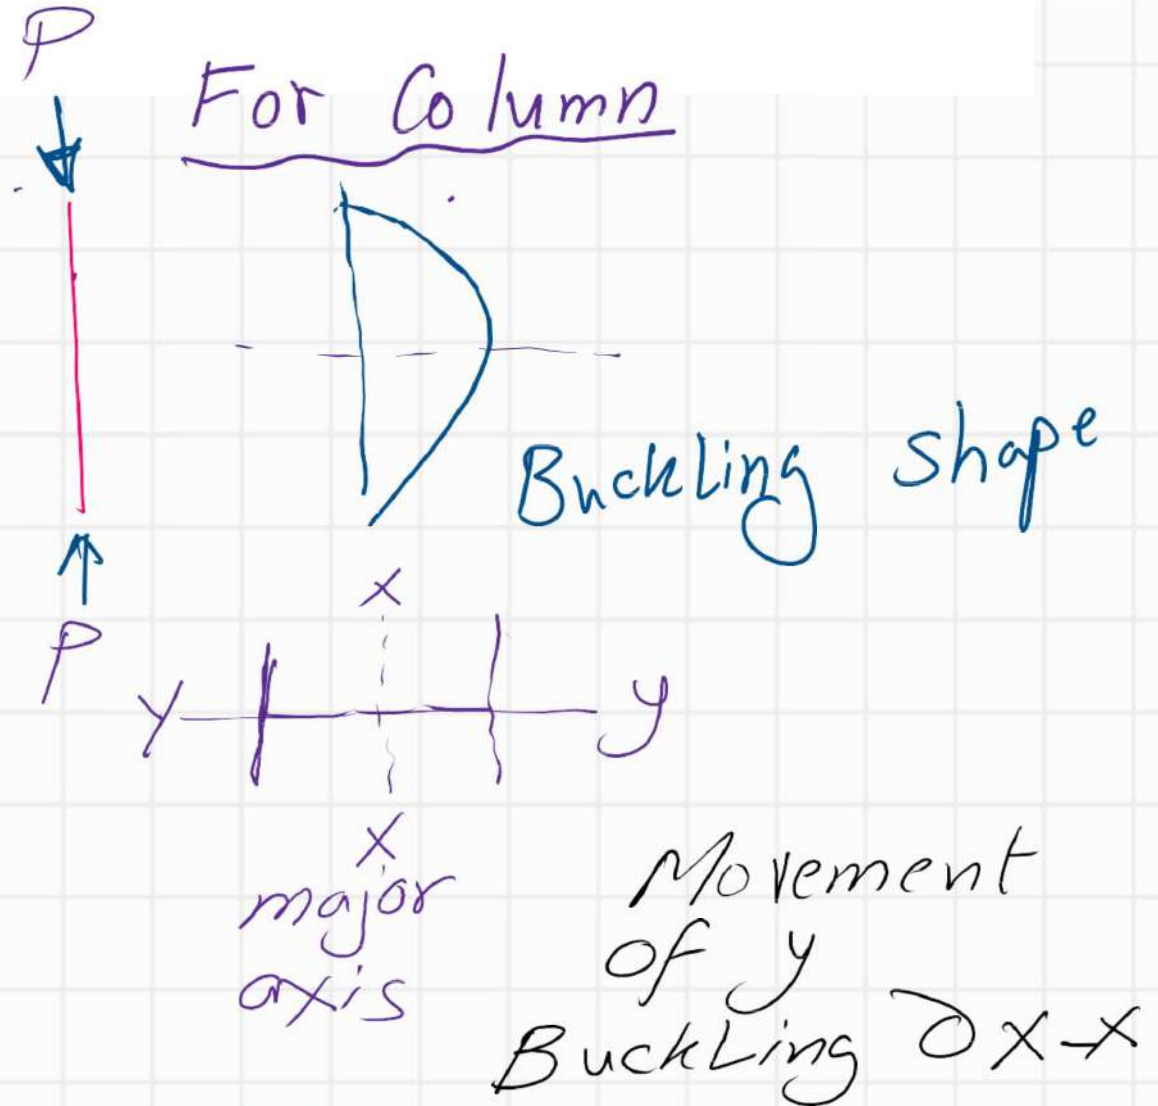 P
For Column
Buckling shape
P
X
y y
X
major
axis
Movement
of y
Buckling ∂ X-X